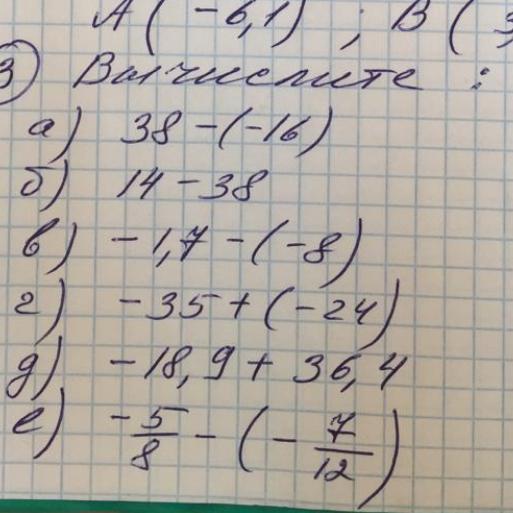 A(-6,1) ; B(3
3) Вычислите :
а) 38 - (-16)
б) 14 - 38
в) - 1,7 - (-8)
г) - 35 + (-24)
д) - 18,9 + 36,4
е) -5/8 - (-7/12)